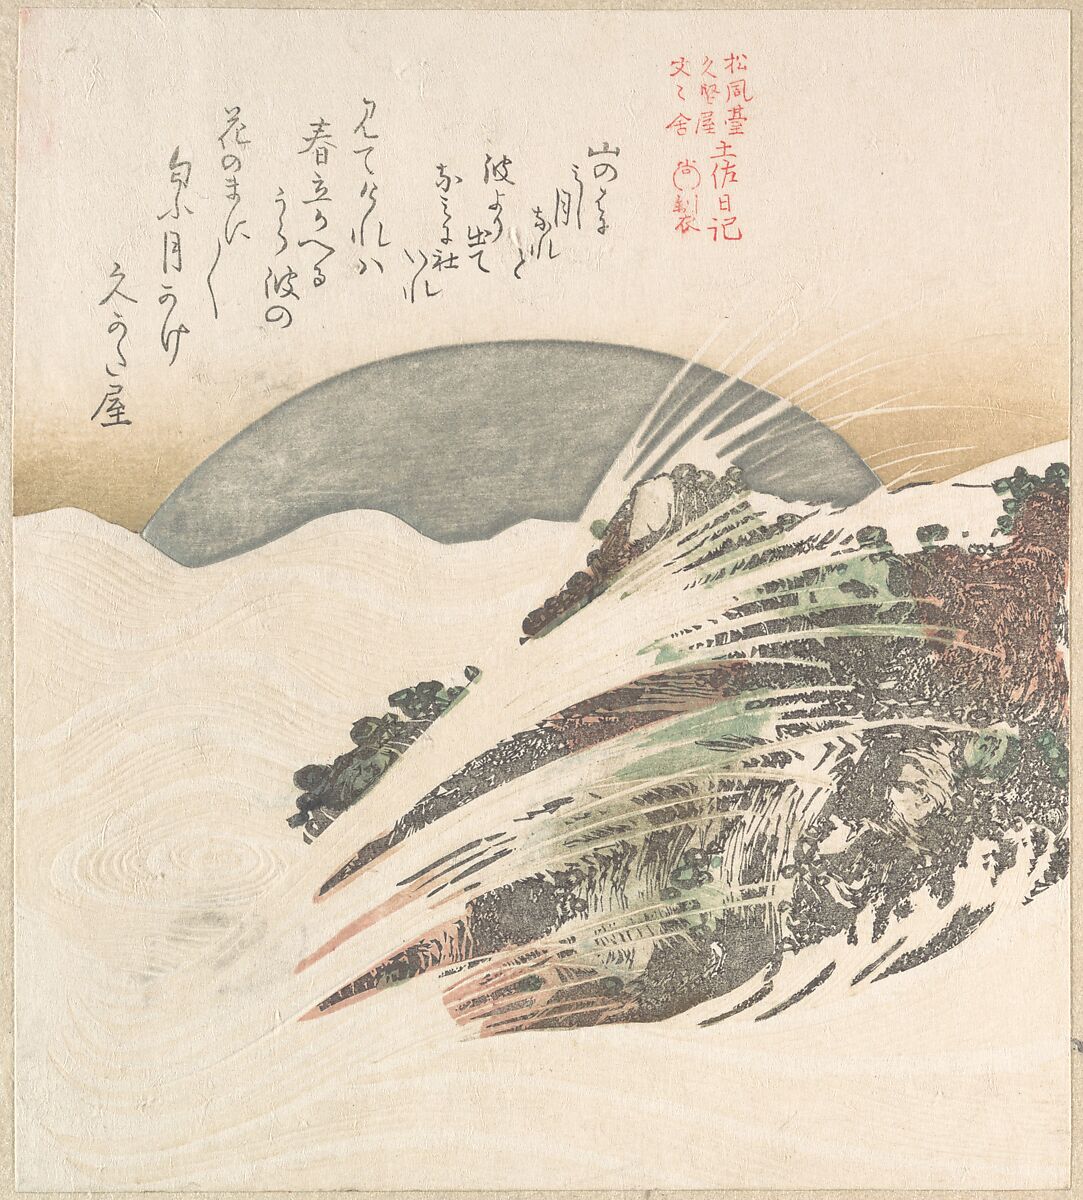 松風臺土佐日记
久堅屋
文〻舎 尚製
山のはに
みし月
なれと
波より
出て
なみに社
いれ
見てけれハ
春立かへる
うら波の
花のまに〳〵
匂ふ月かけ
久かた屋